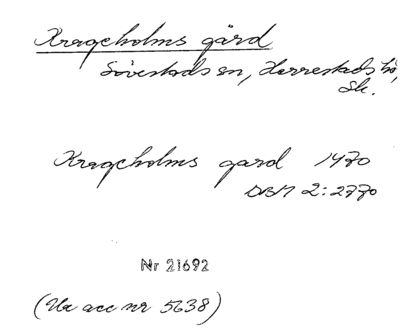 Krageholms gård
Sövestads sn, Herrestads hd,
Sk.
Krageholms gard 1470
DBM 2:2770
Nr 21692
(Ur acc nr 5638)